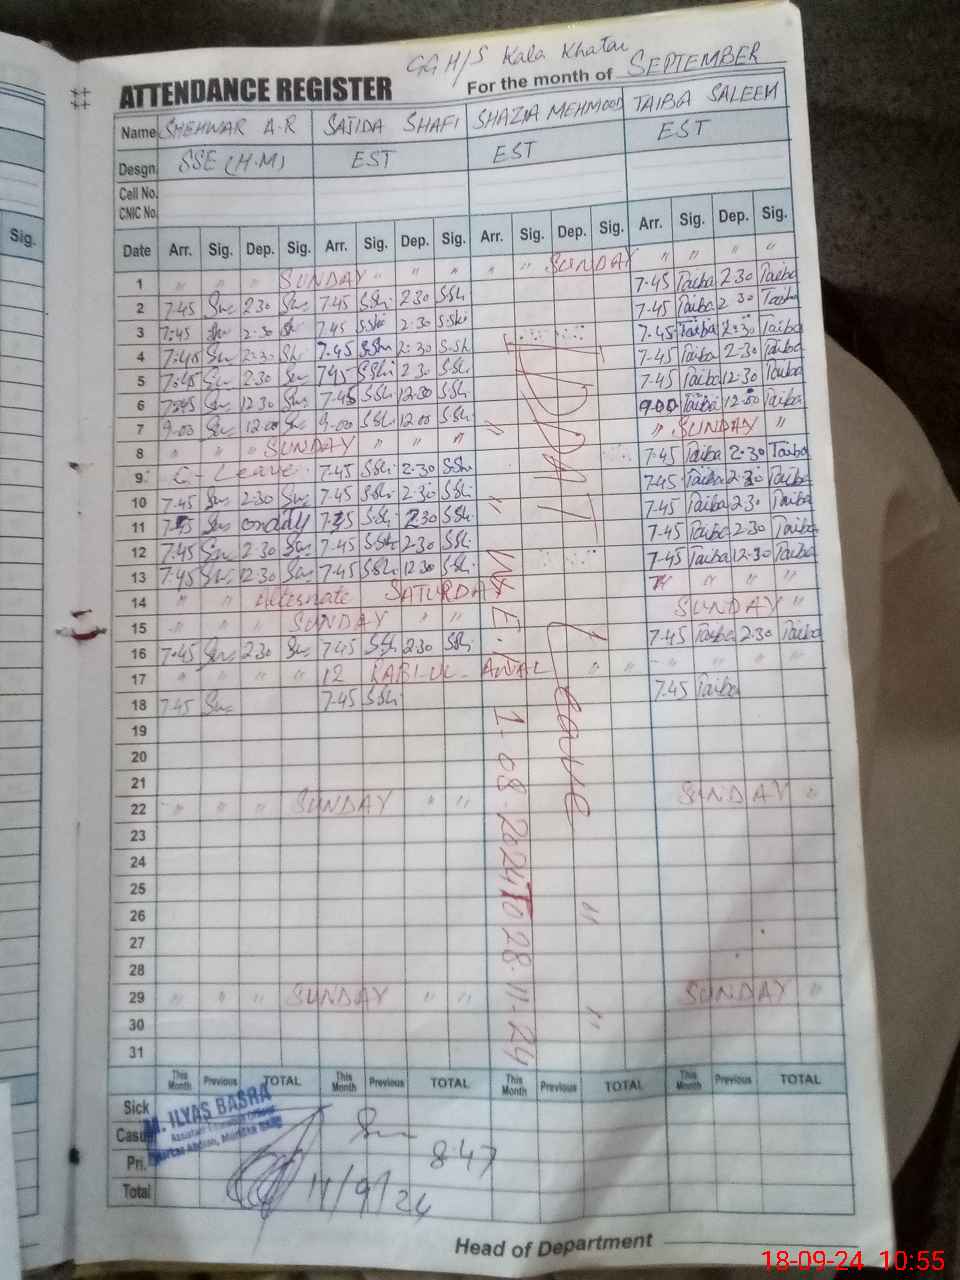 GGH/S Kala Khatai
ATTENDANCE REGISTER For the month of SEPTEMBER
Name SHEHWAR A.R SAJIDA SHAFI SHAZIA MEHMOOD TAIBA SALEEM
Desgn. SSE (H.M) EST EST EST
Cell No.
CNIC No.
Sig.
Date Arr. Sig. Dep. Sig. Arr. Sig. Dep. Sig. Arr. Sig. Dep. Sig. Arr. Sig. Dep. Sig.
1 " " " SUNDAY " " " " " SUNDAY " " " "
2 7.45 2.30 7.45 SSh 2.30 SSh 7.45 Taiba 2.30 Taiba
3 7:45 2.30 7.45 SSh 2.30 SSh 7.45 Taiba 2.30 Taiba
4 7:45 2:30 7.45 SSh 2:30 SSh 7.45 Taiba 2:30 Taiba
5 7:45 2.30 7.45 SSh 2.30 SSh 7.45 Taiba 2.30 Taiba
6 7:45 12.30 7.45 SSh 12.30 SSh 7.45 Taiba 12.30 Taiba
7 9.00 12.00 9.00 SSh 12.00 SSh 9.00 Taiba 12.00 Taiba
8 " " SUNDAY " " " " SUNDAY "
9 C - Leave 7.45 SSh 2.30 SSh 7.45 Taiba 2.30 Taiba
10 7.45 2.30 7.45 SSh 2.30 SSh 7.45 Taiba 2.30 Taiba
11 7.45 on duty 7.45 SSh 2.30 SSh 7.45 Taiba 2.30 Taiba
12 7.45 2.30 7.45 SSh 2.30 SSh 7.45 Taiba 2.30 Taiba
13 7.45 12.30 7.45 SSh 12.30 SSh 7.45 Taiba 12.30 Taiba
14 " " Alternate SATURDAY " " " "
15 " " SUNDAY " " SUNDAY "
16 7.45 2.30 7.45 SSh 2.30 SSh 7.45 Taiba 2.30 Taiba
17 " " " " 12 RABI-UL-AWAL " " " " " "
18 7.45 7.45 SSh 7.45 Taiba
19
20
21
22 " " " SUNDAY " " SUNDAY "
23
24
25
26
27
28
29 " " " SUNDAY " " SUNDAY "
30
31
IDDAT Leave
W.E.F 1.08.2024 TO 28.11.24
This Month Previous TOTAL This Month Previous TOTAL This Month Previous TOTAL This Month Previous TOTAL
Sick
Casual
Pri.
Total
M. ILYAS BASRA
8.47
11/9/24
Head of Department
18-09-24 10:55